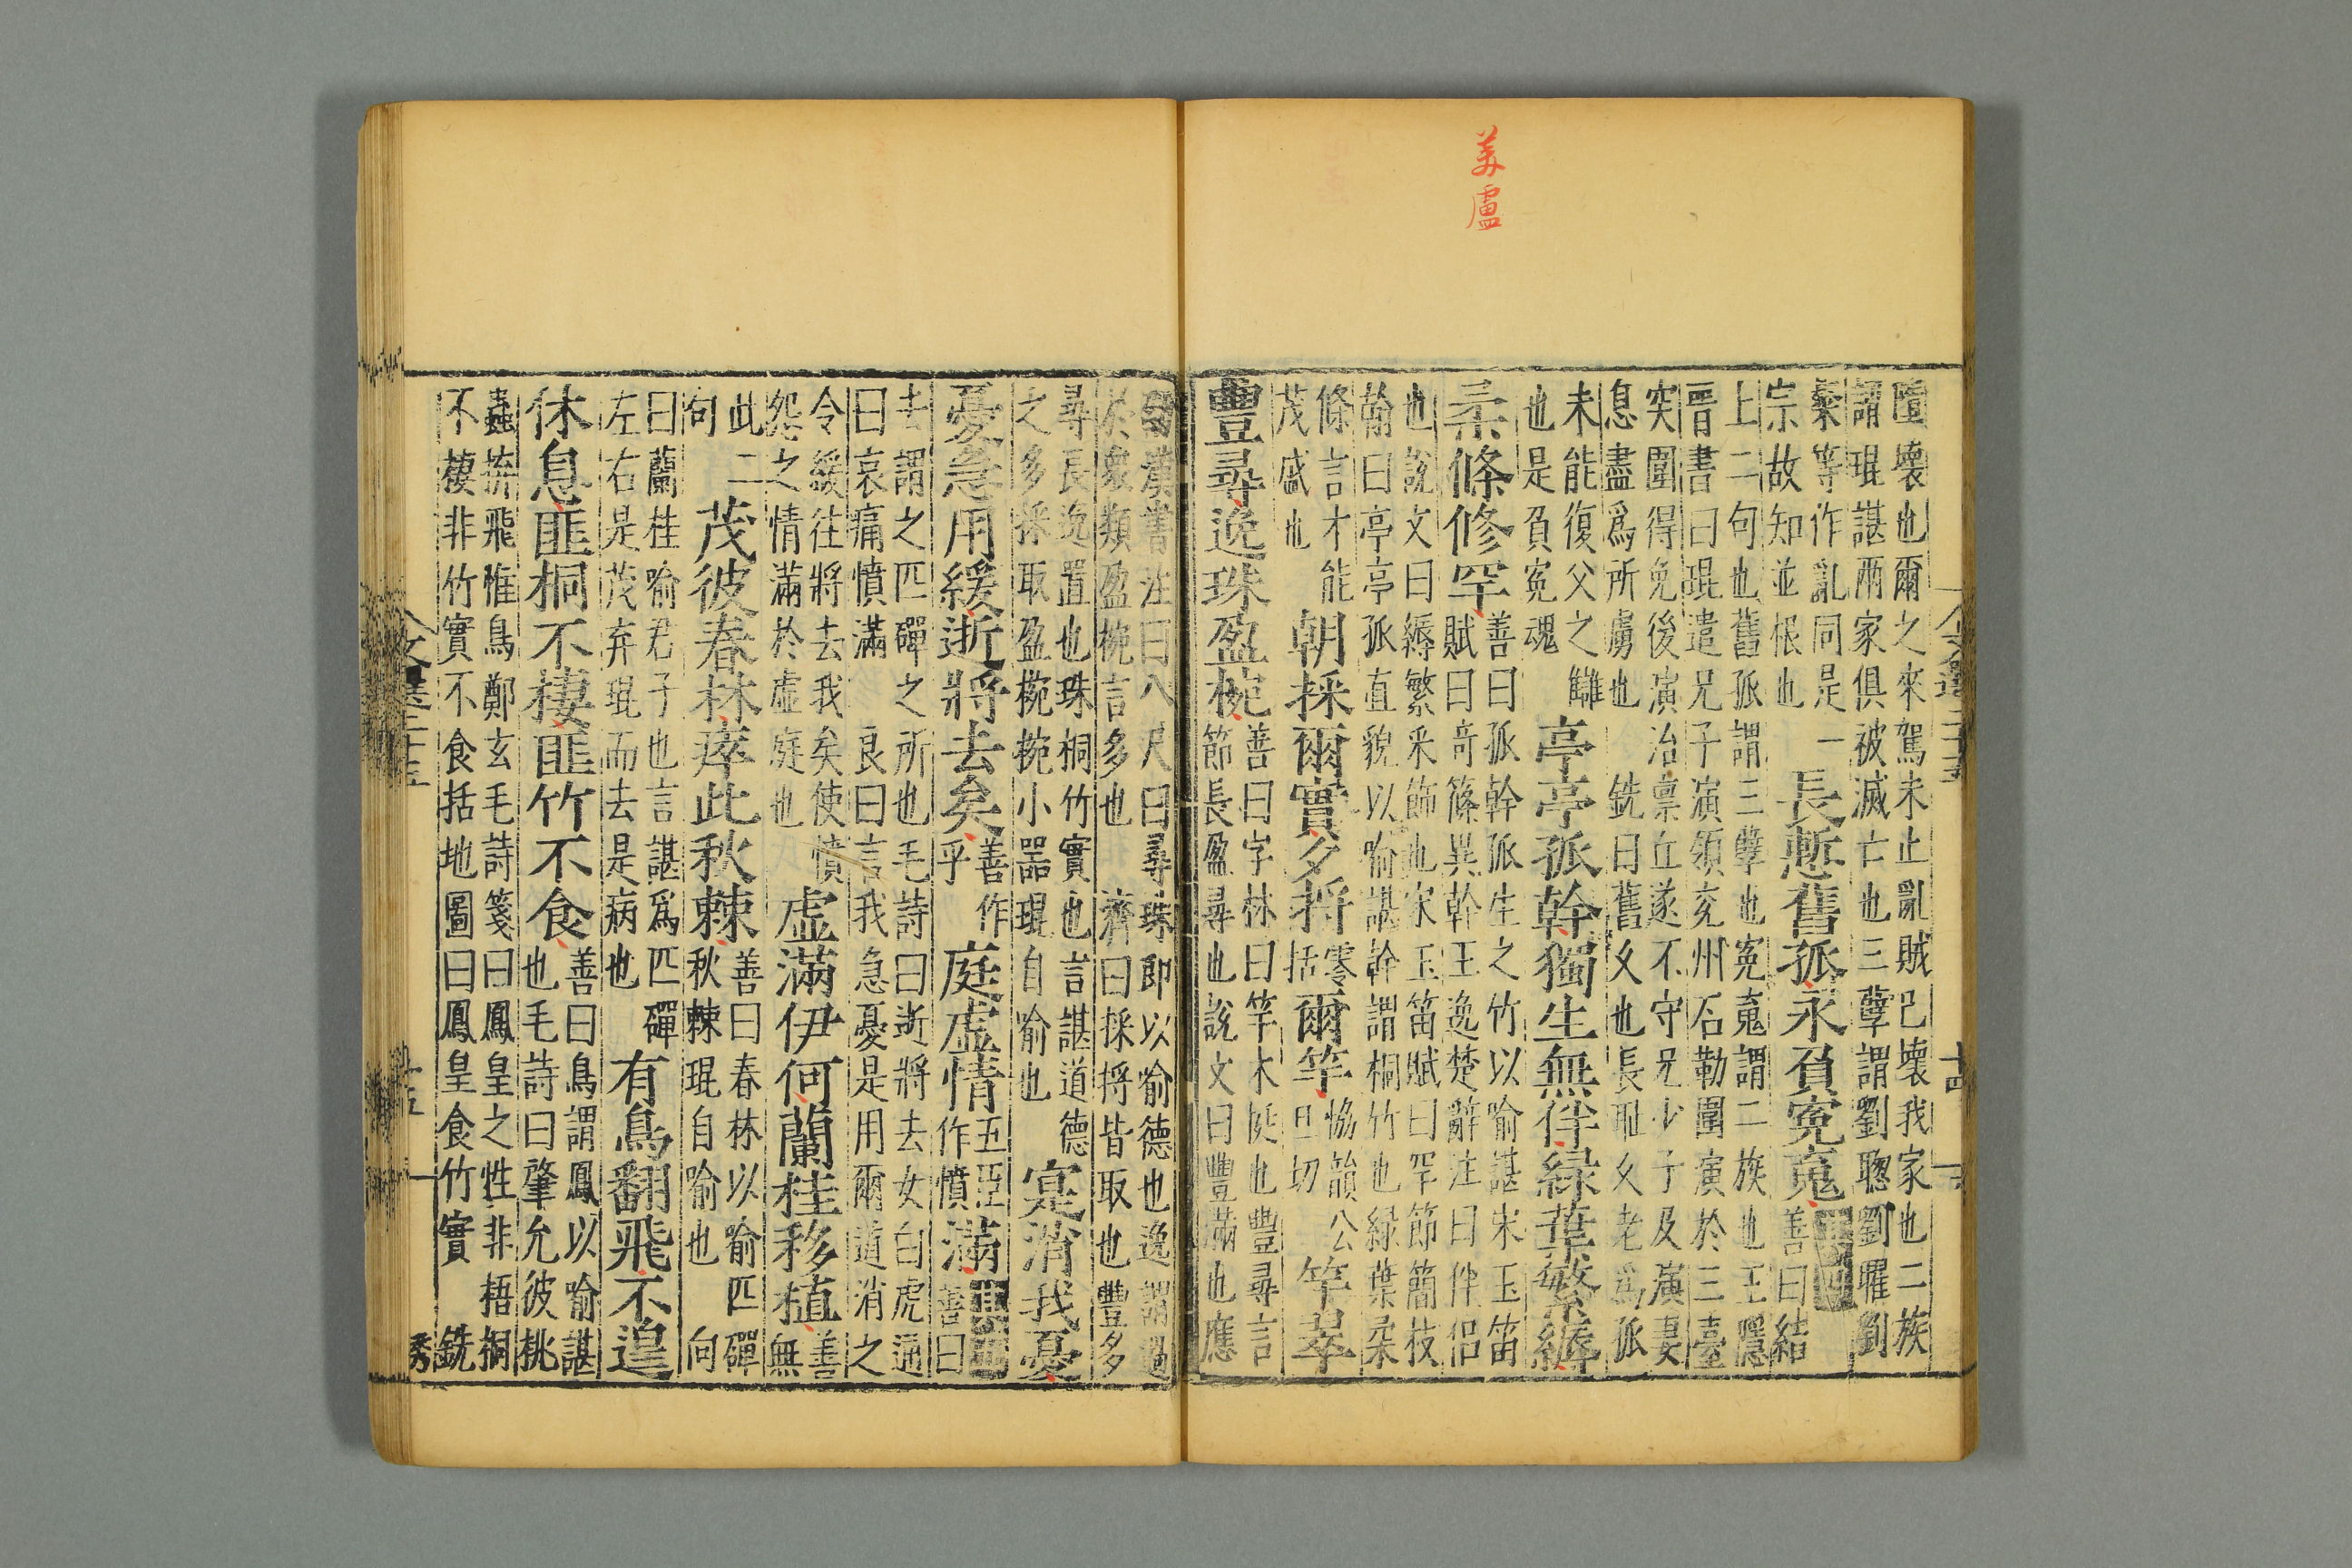 美盧
隳壞也爾之來駕未止亂賊已壞我家也二族
謂琨諶兩家俱被滅亡也三孽謂劉聰劉曜劉
粲等作亂同是一
宗故知並根也
長慙舊孤永負冤䰟
善曰結
上二句也舊孤謂三孽也冤䰟謂二族也王隱
晉書曰琨遣兄子演領兗州石勒圍演於三臺
突圍得免後演治禀丘遂不守兄少子及演妻
息盡爲所虜也
銑曰舊久也長耻久老爲孤
未能復父之讎
也是負冤魂
亭亭孤幹獨生無伴緑葉繁縟
柔條修罕
善曰孤幹孤生之竹以喻諶宋玉笛
賦曰奇篠異幹王逸楚辭注曰伴侣
也說文曰縟繁采飾也宋玉笛賦曰罕節簡枝
翰曰亭亭孤直貌以喻諶幹謂桐竹也緑葉柔
條言才能
茂盛也
朝採爾實夕捋
零
括
爾竿
協韻公
旦切
竿翠
豐尋逸珠盈椀
善曰字林曰竿木挺也豐尋言
節長盈尋也說文曰豐滿也應
劭漢書注曰八尺曰尋珠即以喻德也逸謂過
於衆類盈椀言多也
濟曰採捋皆取也豐多
尋長逸置也珠桐竹實也言諶道德
之多採取盈椀椀小器琨自喻也
寔消我憂
憂急用緩逝將去矣
善作
乎
庭虚情
五臣
作憤
滿
善曰
去謂之匹磾之所也毛詩曰逝將去女白虎通
曰哀痛憤滿
良曰言我急憂是用爾道消之
令緩往將去我矣使憤
怨之情滿於虚庭也
虚滿伊何蘭桂移植
善
無
此二
句
茂彼春林瘁此秋棘
善曰春林以喻匹磾
秋棘琨自喻也
向
曰蘭桂喻君子也言諶爲匹磾
左右是茂弃琨而去是病也
有鳥翻飛不遑
休息匪桐不棲匪竹不食
善曰鳥謂鳳以喻諶
也毛詩曰肇允彼桃
蟲拚飛惟鳥鄭玄毛詩箋曰鳳皇之性非梧桐
不棲非竹實不食括地圖曰鳳皇食竹實
銑